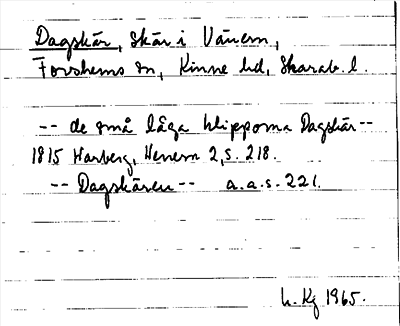 Dagskär, skär i Vänern,
Forshems sn, Kinne hd, Skarab. l.
-- de små låga klipporna Dagskär --
1815 Warberg, Wenern 2, s. 218.
-- Dagskären -- a.a. s. 221.
L. Kg 1965.